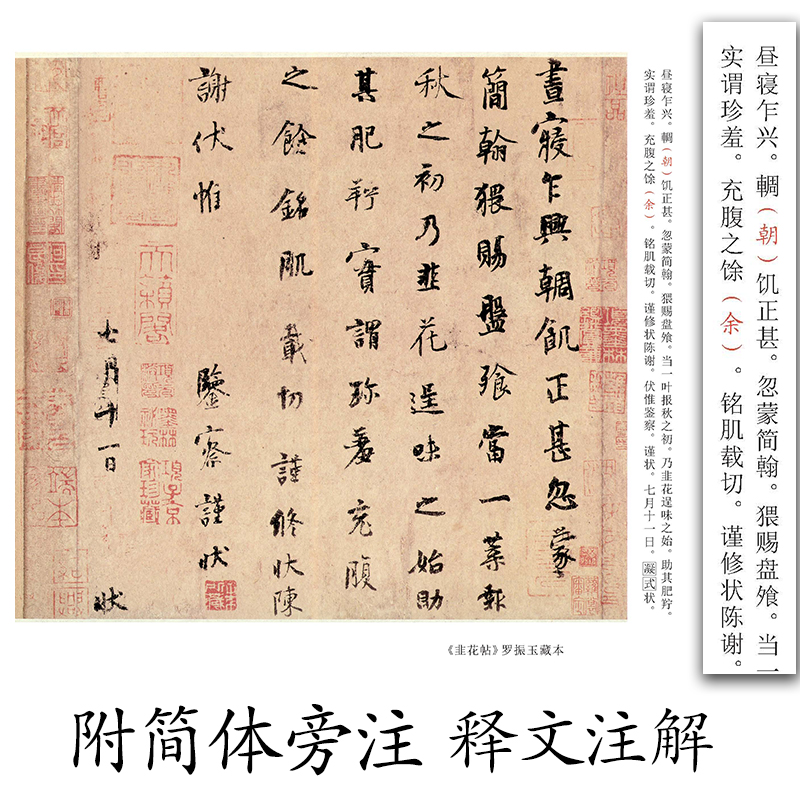 晝寢乍興輖飢正甚忽蒙
簡翰猥賜盤飧當一葉報
秋之初乃韭花逞味之始助
其肥羜實謂珍羞充腹
之餘銘肌載切謹修狀陳
謝伏惟鑒察謹狀
七月十一日狀
天籟閣
項子京家珍藏
昼寝乍兴。輖（朝）饥正甚。忽蒙简翰。猥赐盘飧。当一叶报秋之初。乃韭花逞味之始。助其肥羜。
实谓珍羞。充腹之馀（余）。铭肌载切。谨修状陈谢。伏惟鉴察。谨状。七月十一日。凝式状。
昼寝乍兴。輖（朝）饥正甚。忽蒙简翰。猥赐盘飧。当一
实谓珍羞。充腹之馀（余）。铭肌载切。谨修状陈谢。
《韭花帖》罗振玉藏本
附简体旁注 释文注解